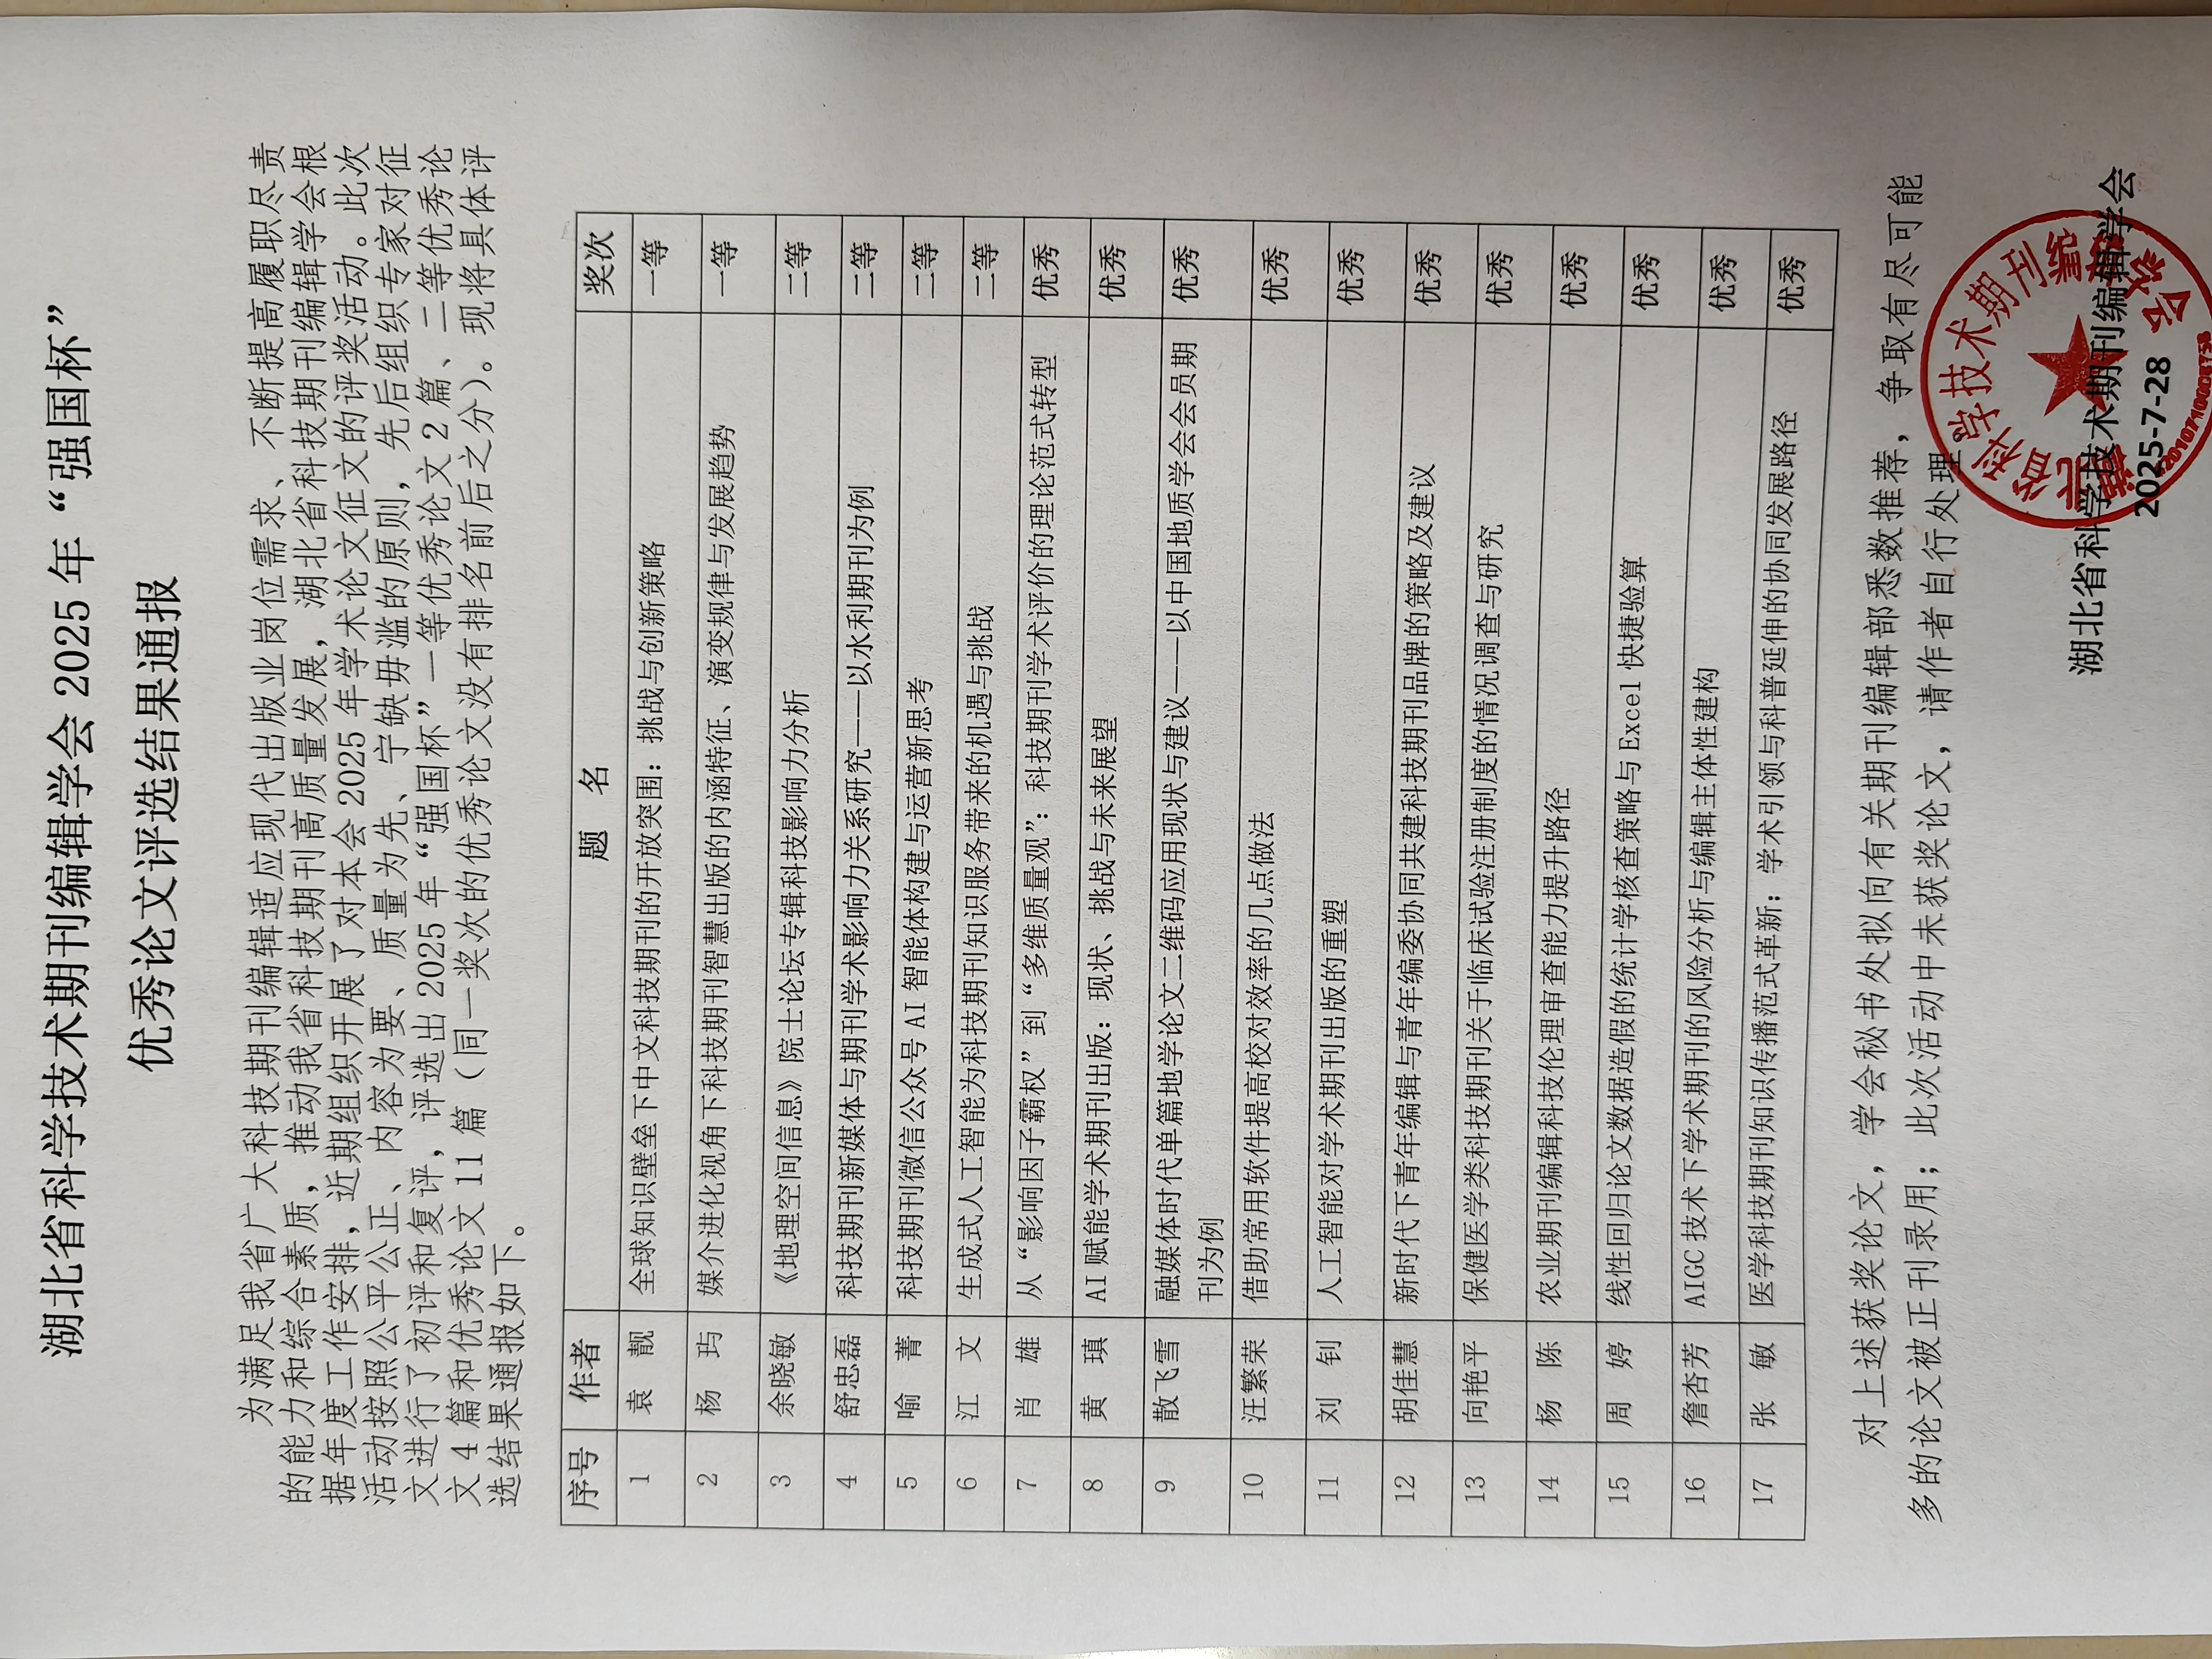 湖北省科学技术期刊编辑学会 2025 年“强国杯”
优秀论文评选结果通报
为满足我省广大科技期刊编辑适应现代出版业岗位需求、不断提高履职尽责
的能力和综合素质，推动我省科技期刊高质量发展，湖北省科技期刊编辑学会根
据年度工作安排，近期组织开展了对本会 2025 年学术论文征文的评奖活动。此次
活动按照公平公正、内容为要、质量为先、宁缺毋滥的原则，先后组织专家对征
文进行了初评和复评，评选出 2025 年“强国杯”一等优秀论文 2 篇、二等优秀论
文 4 篇和优秀论文 11 篇（同一奖次的优秀论文没有排名前后之分）。现将具体评
选结果通报如下。
序号 作者 题 名 奖次
1 袁 靓 全球知识壁垒下中文科技期刊的开放突围：挑战与创新策略 一等
2 杨 玙 媒介进化视角下科技期刊智慧出版的内涵特征、演变规律与发展趋势 一等
3 余晓敏 《地理空间信息》院士论坛专辑科技影响力分析 二等
4 舒忠磊 科技期刊新媒体与期刊学术影响力关系研究——以水利期刊为例 二等
5 喻 菁 科技期刊微信公众号 AI 智能体构建与运营新思考 二等
6 江 文 生成式人工智能为科技期刊知识服务带来的机遇与挑战 二等
7 肖 雄 从“影响因子霸权”到“多维质量观”：科技期刊学术评价的理论范式转型 优秀
8 黄 瑱 AI 赋能学术期刊出版：现状、挑战与未来展望 优秀
9 散飞雪 融媒体时代单篇地学论文二维码应用现状与建议——以中国地质学会会员期
刊为例 优秀
10 汪繁荣 借助常用软件提高校对效率的几点做法 优秀
11 刘 钊 人工智能对学术期刊出版的重塑 优秀
12 胡佳慧 新时代下青年编辑与青年编委协同共建科技期刊品牌的策略及建议 优秀
13 向艳平 保健医学类科技期刊关于临床试验注册制度的情况调查与研究 优秀
14 杨 陈 农业期刊编辑科技伦理审查能力提升路径 优秀
15 周 婷 线性回归论文数据造假的统计学核查策略与 Excel 快捷验算 优秀
16 詹杏芳 AIGC 技术下学术期刊的风险分析与编辑主体性建构 优秀
17 张 敏 医学科技期刊知识传播范式革新：学术引领与科普延伸的协同发展路径 优秀
对上述获奖论文，学会秘书处拟向有关期刊编辑部悉数推荐，争取有尽可能
多的论文被正刊录用；此次活动中未获奖论文，请作者自行处理。
湖北省科学技术期刊编辑学会
2025-7-28